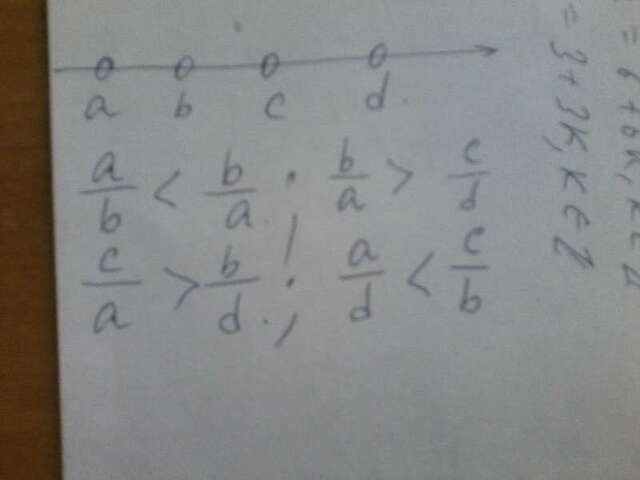 a b c d.
a/b < b/a; b/a > c/d
c/a > b/d.; a/d < c/b
= 3 + 3k, k ∈ Z